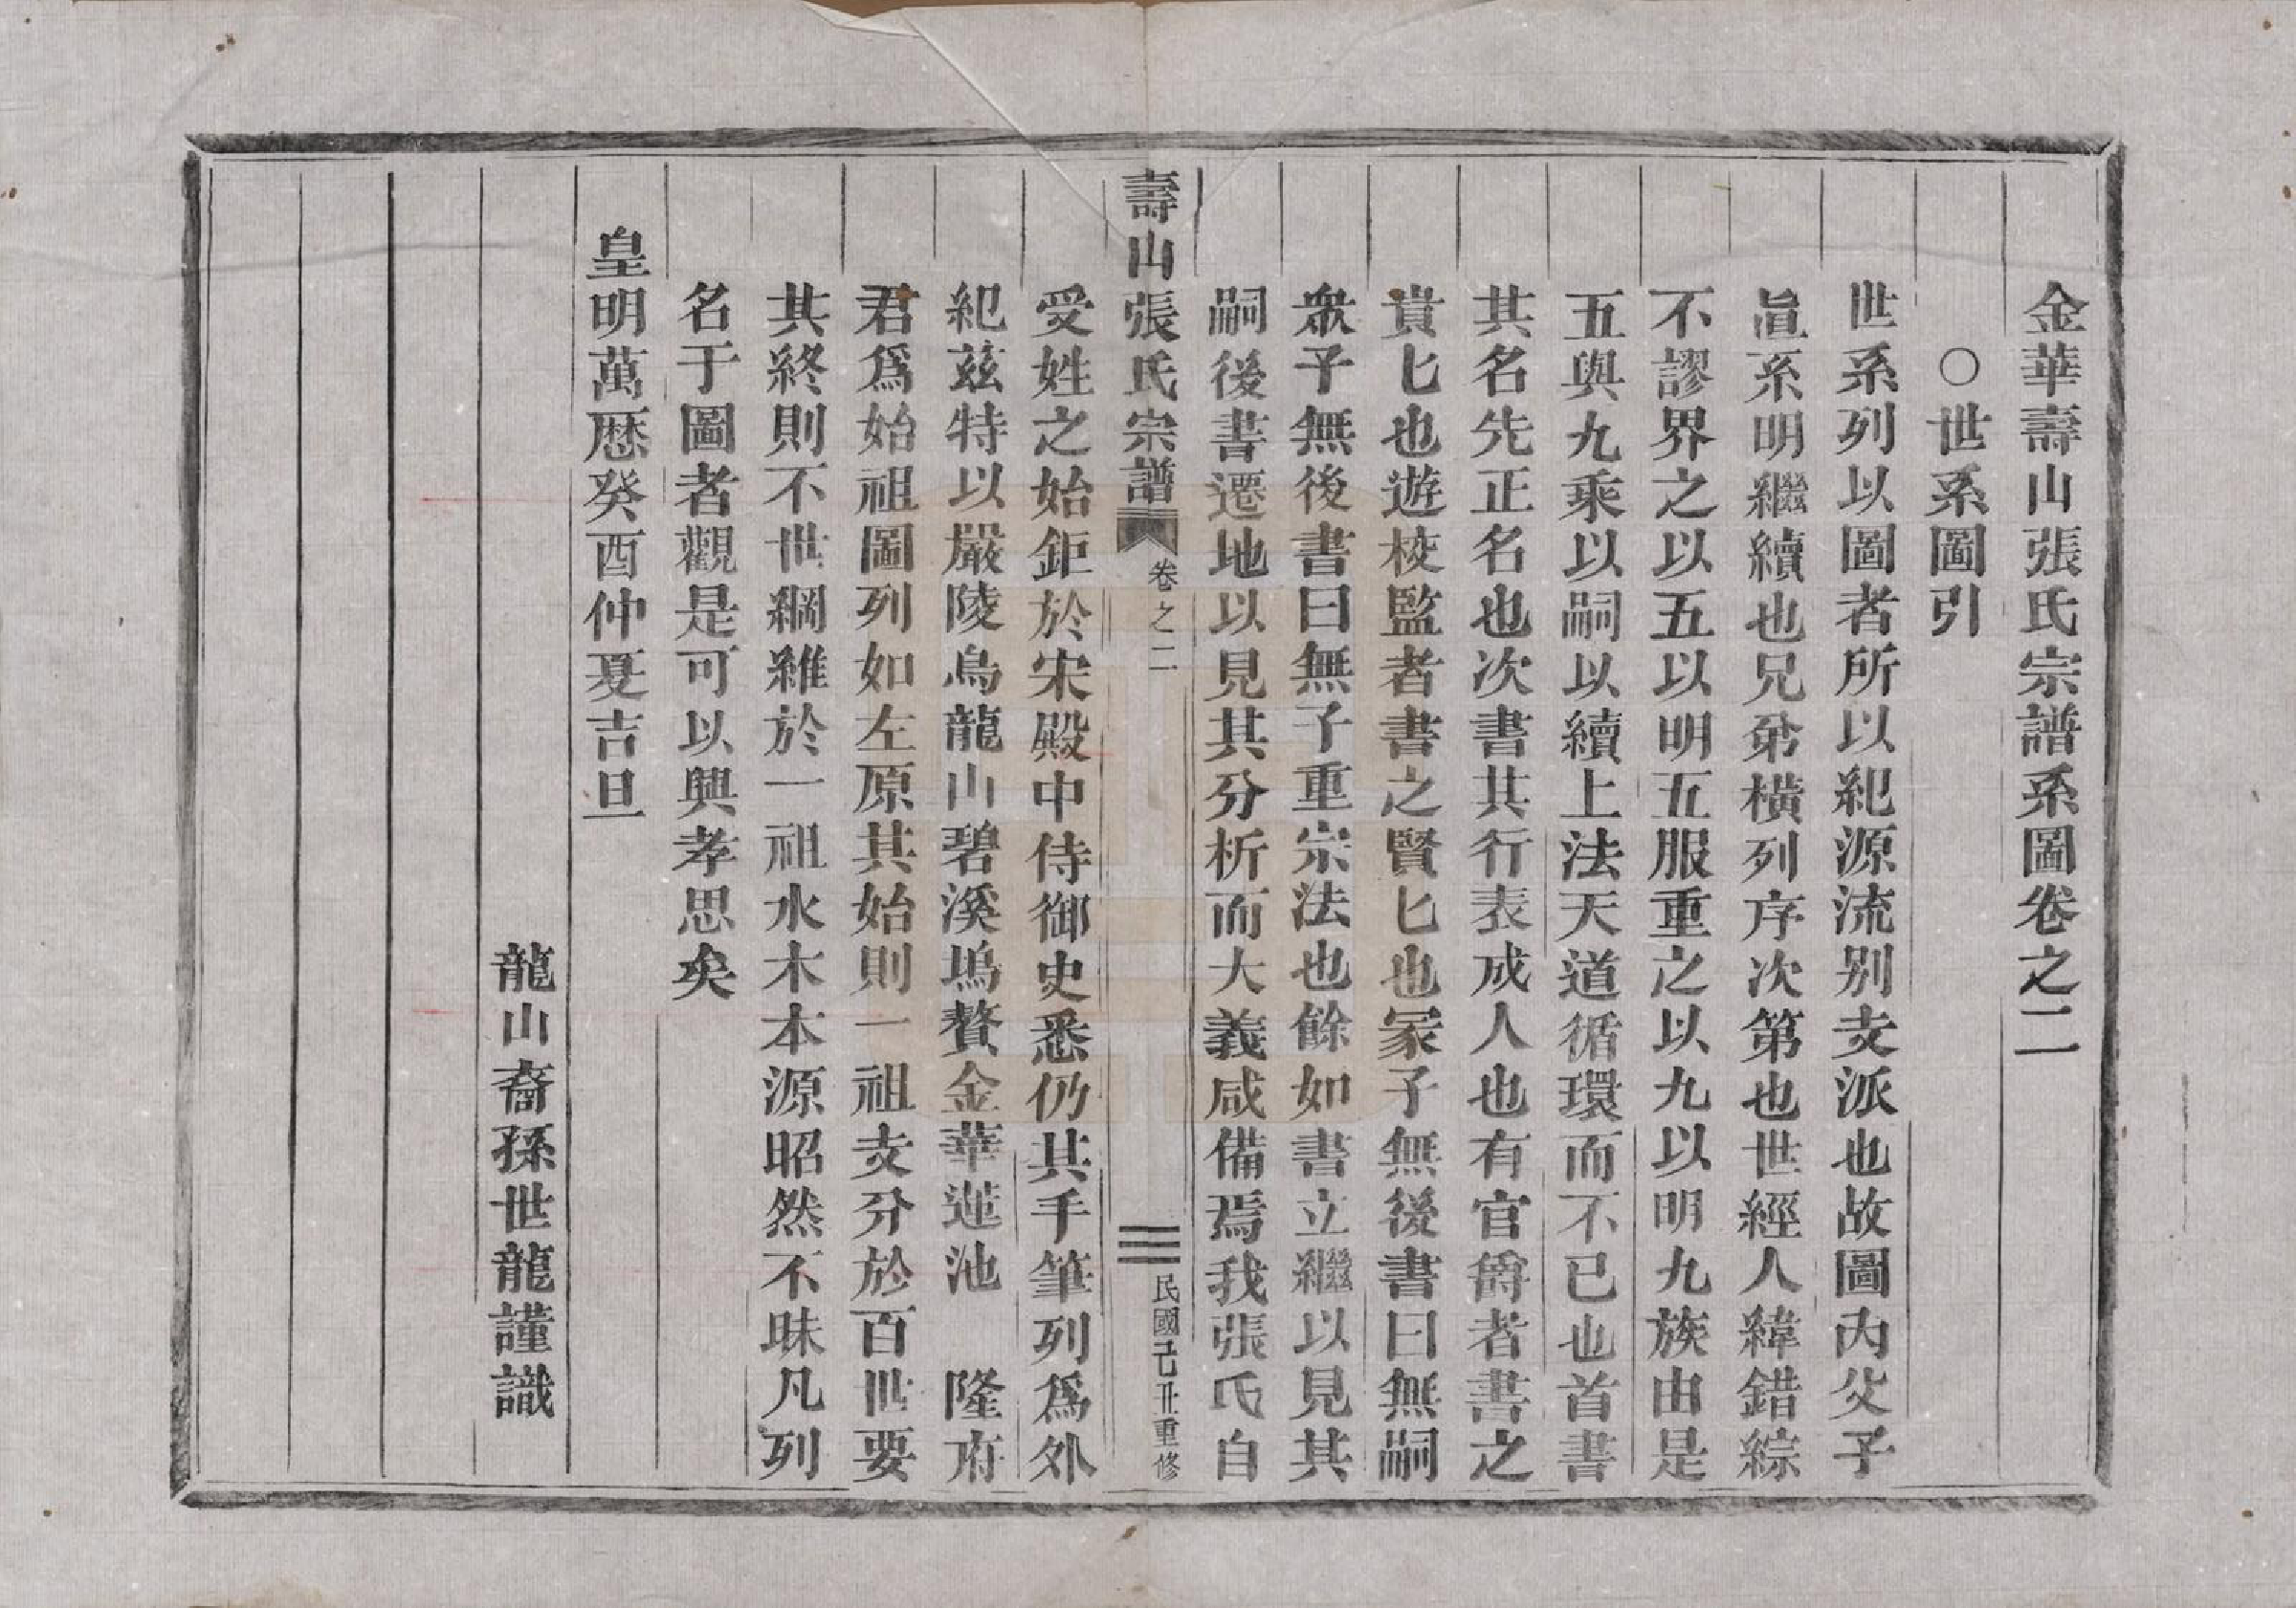 金華壽山張氏宗譜系圖卷之二
○世系圖引
世系列以圖者所以紀源流别支派也故圖內父子
直系明繼續也兄弟橫列序次第也世經人緯錯綜
不謬界之以五以明五服重之以九以明九族由是
五與九乘以嗣以續上法天道循環而不已也首書
其名先正名也次書其行表成人也有官爵者書之
貴匕也遊校監者書之賢匕也冢子無後書曰無嗣
衆子無後書曰無子重宗法也餘如書立繼以見其
嗣後書遷地以見其分析而大義咸備焉我張氏自
壽山張氏宗譜 卷之二 民國己丑重修
受姓之始鉅於宋殿中侍御史悉仍其手筆列爲外
紀茲特以嚴陵烏龍山碧溪塢贅金華蓮池 隆府
君爲始祖圖列如左原其始則一祖支分於百世要
其終則不世綱維於一祖水木本源昭然不昧凡列
名于圖者觀是可以興孝思矣
皇明萬歷癸酉仲夏吉旦
龍山裔孫世龍謹識